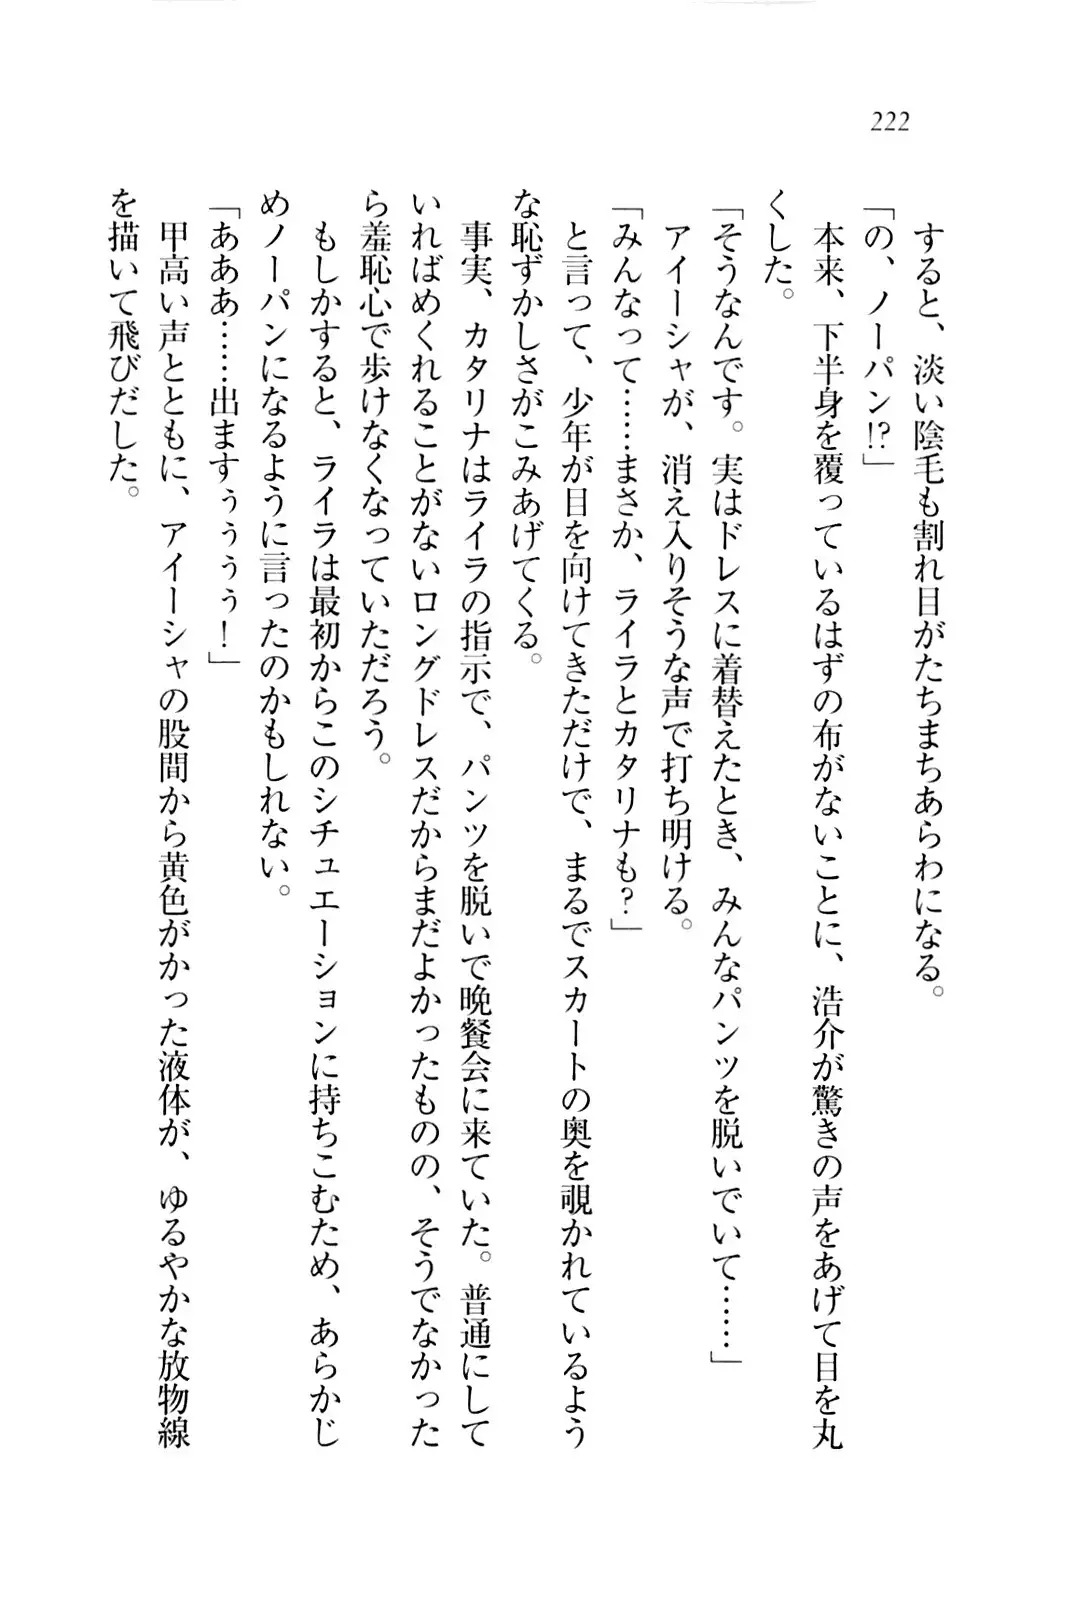 222
すると、淡い陰毛も割れ目がたちまちあらわになる。
「の、ノーパン!?」
本来、下半身を覆っているはずの布がないことに、浩介が驚きの声をあげて目を丸
くした。
「そうなんです。実はドレスに着替えたとき、みんなパンツを脱いでいて……」
アイーシャが、消え入りそうな声で打ち明ける。
「みんなって……まさか、ライラとカタリナも?」
と言って、少年が目を向けてきただけで、まるでスカートの奥を覗かれているよう
な恥ずかしさがこみあげてくる。
事実、カタリナはライラの指示で、パンツを脱いで晩餐会に来ていた。普通にして
いればめくれることがないロングドレスだからまだよかったものの、そうでなかった
ら羞恥心で歩けなくなっていただろう。
もしかすると、ライラは最初からこのシチュエーションに持ちこむため、あらかじ
めノーパンになるように言ったのかもしれない。
「あああ……出ますぅぅぅぅ!」
甲高い声とともに、アイーシャの股間から黄色がかった液体が、ゆるやかな放物線
を描いて飛びだした。